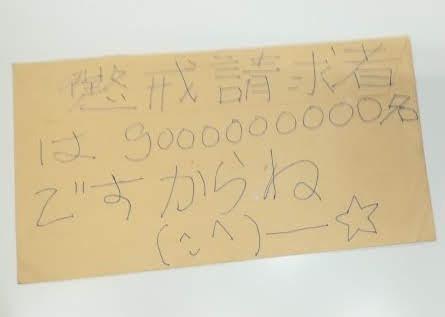 懲戒請求者
は 90000000000名
ですからね
(^◡^)―☆